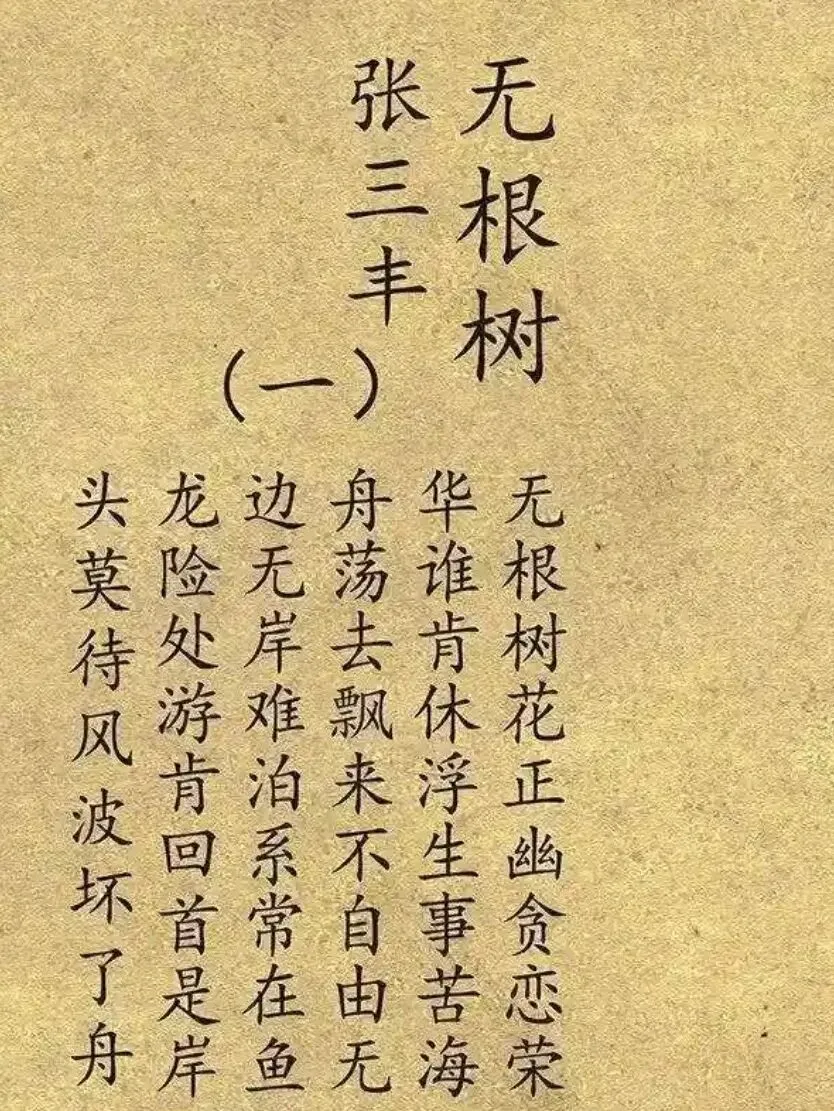 无根树
张三丰
（一）
无根树花正幽贪恋荣
华谁肯休浮生事苦海
舟荡去飘来不自由无
边无岸难泊系常在鱼
龙险处游肯回首是岸
头莫待风波坏了舟